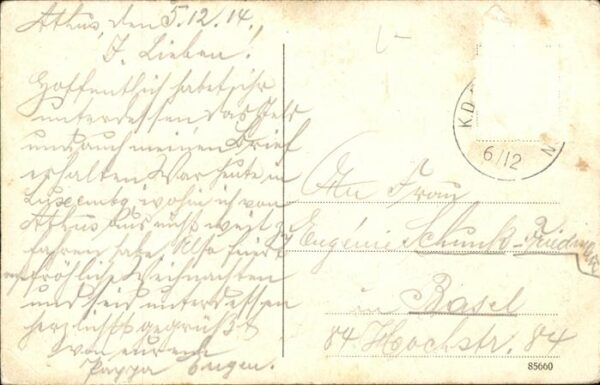 Athus, den 5.12.14.
I. Lieben!
Hoffentlich habet ihr
unterdessen das Geld
und auch meinen Brief
erhalten War heute in
Luxembg, wohin ich von
Athus aus nicht weit z.
fahren habe. Also feiert
fröhliche Weihnachten
und seid unterdessen
herzlichst gegrüßt
von eurem
Pappa Eugen.
K.D.
6/12
N
An Frau
Eugénie Schunk-Friedrich
in Basel
84 Hochstr. 84
85660